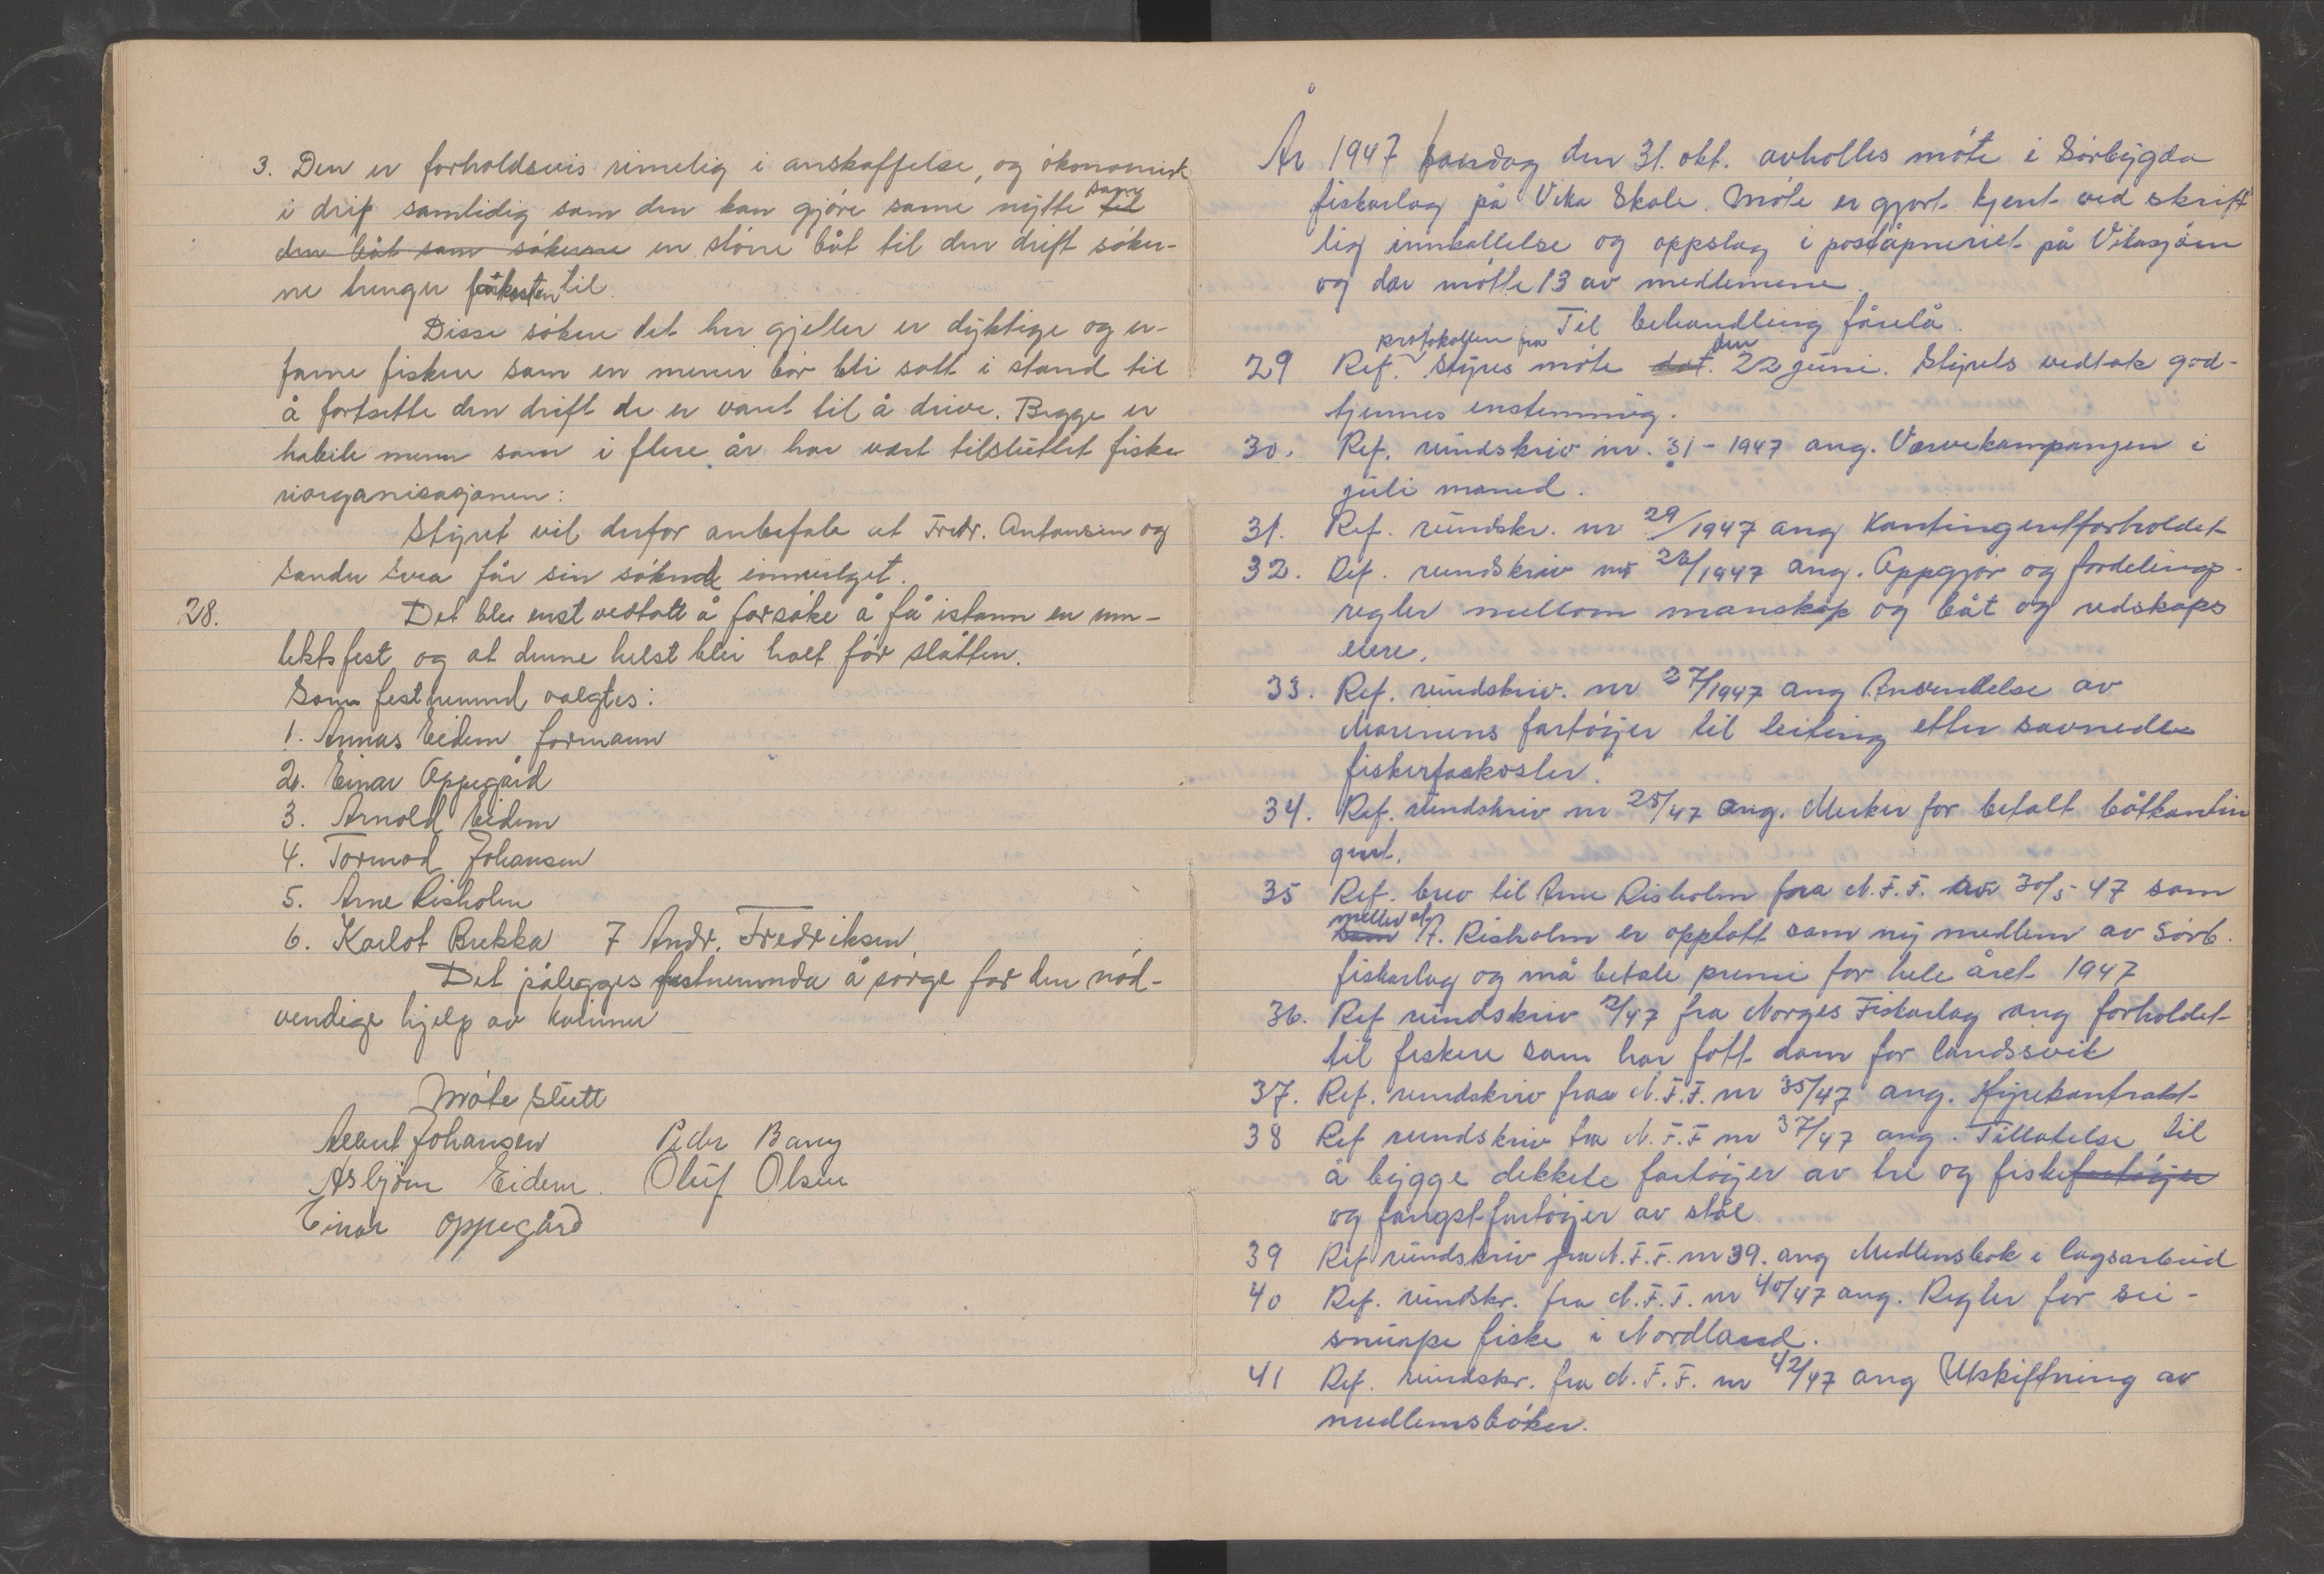 3. Den er forholdsvis rimelig i anskaffelse, og ökonomisk
i drif samtidig som den kan gjöre same nytte som til
den båt som sökerne en störe båt til den drift söker-
ne trenger farkosten til.
Disse sökere det her gjeller er dyktige og er-
farne fiskere som en mener bör bli satt i stand til
å fortsette den drift de er vant til å drive. Begge er
habile menn som i flere år har vært tilsluttet fiske
riorganisasjonen:
Styret vil derfor anbefale at Fredr. Antonsen og
Sander Svea får sin söknde innvilget.
28. Det blei enst vedtatt å forsöke å få istann en
tektsfest og at denne helst blei holt för slåtten.
Som festnemnd valgtes:
1. Annas Eidem formann
2. Einar Oppegård
3. Arnold Eidem
4. Tormod Johansen
5. Arne Risholm
6. Karlot Brekka 7 Andr. Fredriksen
Det pålegges festnemnda å sörge for den nöd-
vendige hjelp av kvinner
Möte slutt
Albert Johansen Peder Bang
Asbjörn Eidem. Oluf Olsen
Einar Oppegård
År 1947 den 31. okt. avholtes möte i Sörbygda
fiskarlag på Vika Skole. Möte er gjort kjent ved skrift
lig innkallelse og oppslag i poståpneriet på Vikasjöen
og der mötte 13 av medlemene.
Til behandling förelå.
29 Ref. protokollen fra Styres möte dat. den 22 juni. Styrets vedtak god-
kjennes enstemmig.
30. Ref. rundskriv nr. 31 - 1947 ang. Vervekampanjen i
juli maned.
31. Ref. rundskr. nr 29/1947 ang Kontingentforholdet
32. Ref. rundskriv nr 26/1947 ang. Oppgjör og fordelings-
regler mellom manskap og båt og redskaps
eiere.
33. Ref. rundskriv. nr 27/1947 ang Anvendelse av
Marinens fartöyer til leiting etter savnede
fiskerfarkoster.
34. Ref. rundskriv nr 28/47 ang. Merker for betalt båtkontin
gent.
35 Ref. brev til Arne Risholm fra N.F.F. av 30/5-47 som
som A. Risholm er opptatt som ny medlem av Sörb.
fiskarlag og må betale premi for hele året 1947
36. Ref rundskriv 2/47 fra Norges Fiskarlag ang forholdet
til fiskere som har fått dom for landssvik
37. Ref. rundskriv fra N.F.F. nr 35/47 ang. Hyrekontrakt
38 Ref rundskriv fra N.F.F nr 37/47 ang. Tillatelse til
å bygge dekkete fartöyer av tre og fiskefartöyer
og fangstfartöyer av stål
39 Ref rundskriv fra N.F.F. nr 39. ang Medlemsbok i lagsarbeid
40 Ref. rundskr. fra N.F.F. nr 40/47 ang. Regler for sei-
snurpe fiske i Nordland.
41 Ref. rundskr. fra N.F.F. nr 42/47 ang Utskiftning av
medlemsböker.